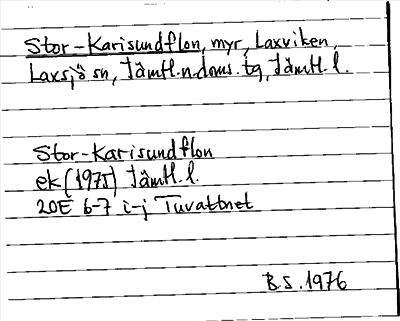 Stor-Karisundflon, myr, Laxviken,
Laxsjö sn, Jämtl. n. doms. tg, Jämtl. l.
Stor-Karisundflon
ek (1975) Jämtl. l.
20E 6-7 i-j Tuvattnet
B.S. 1976